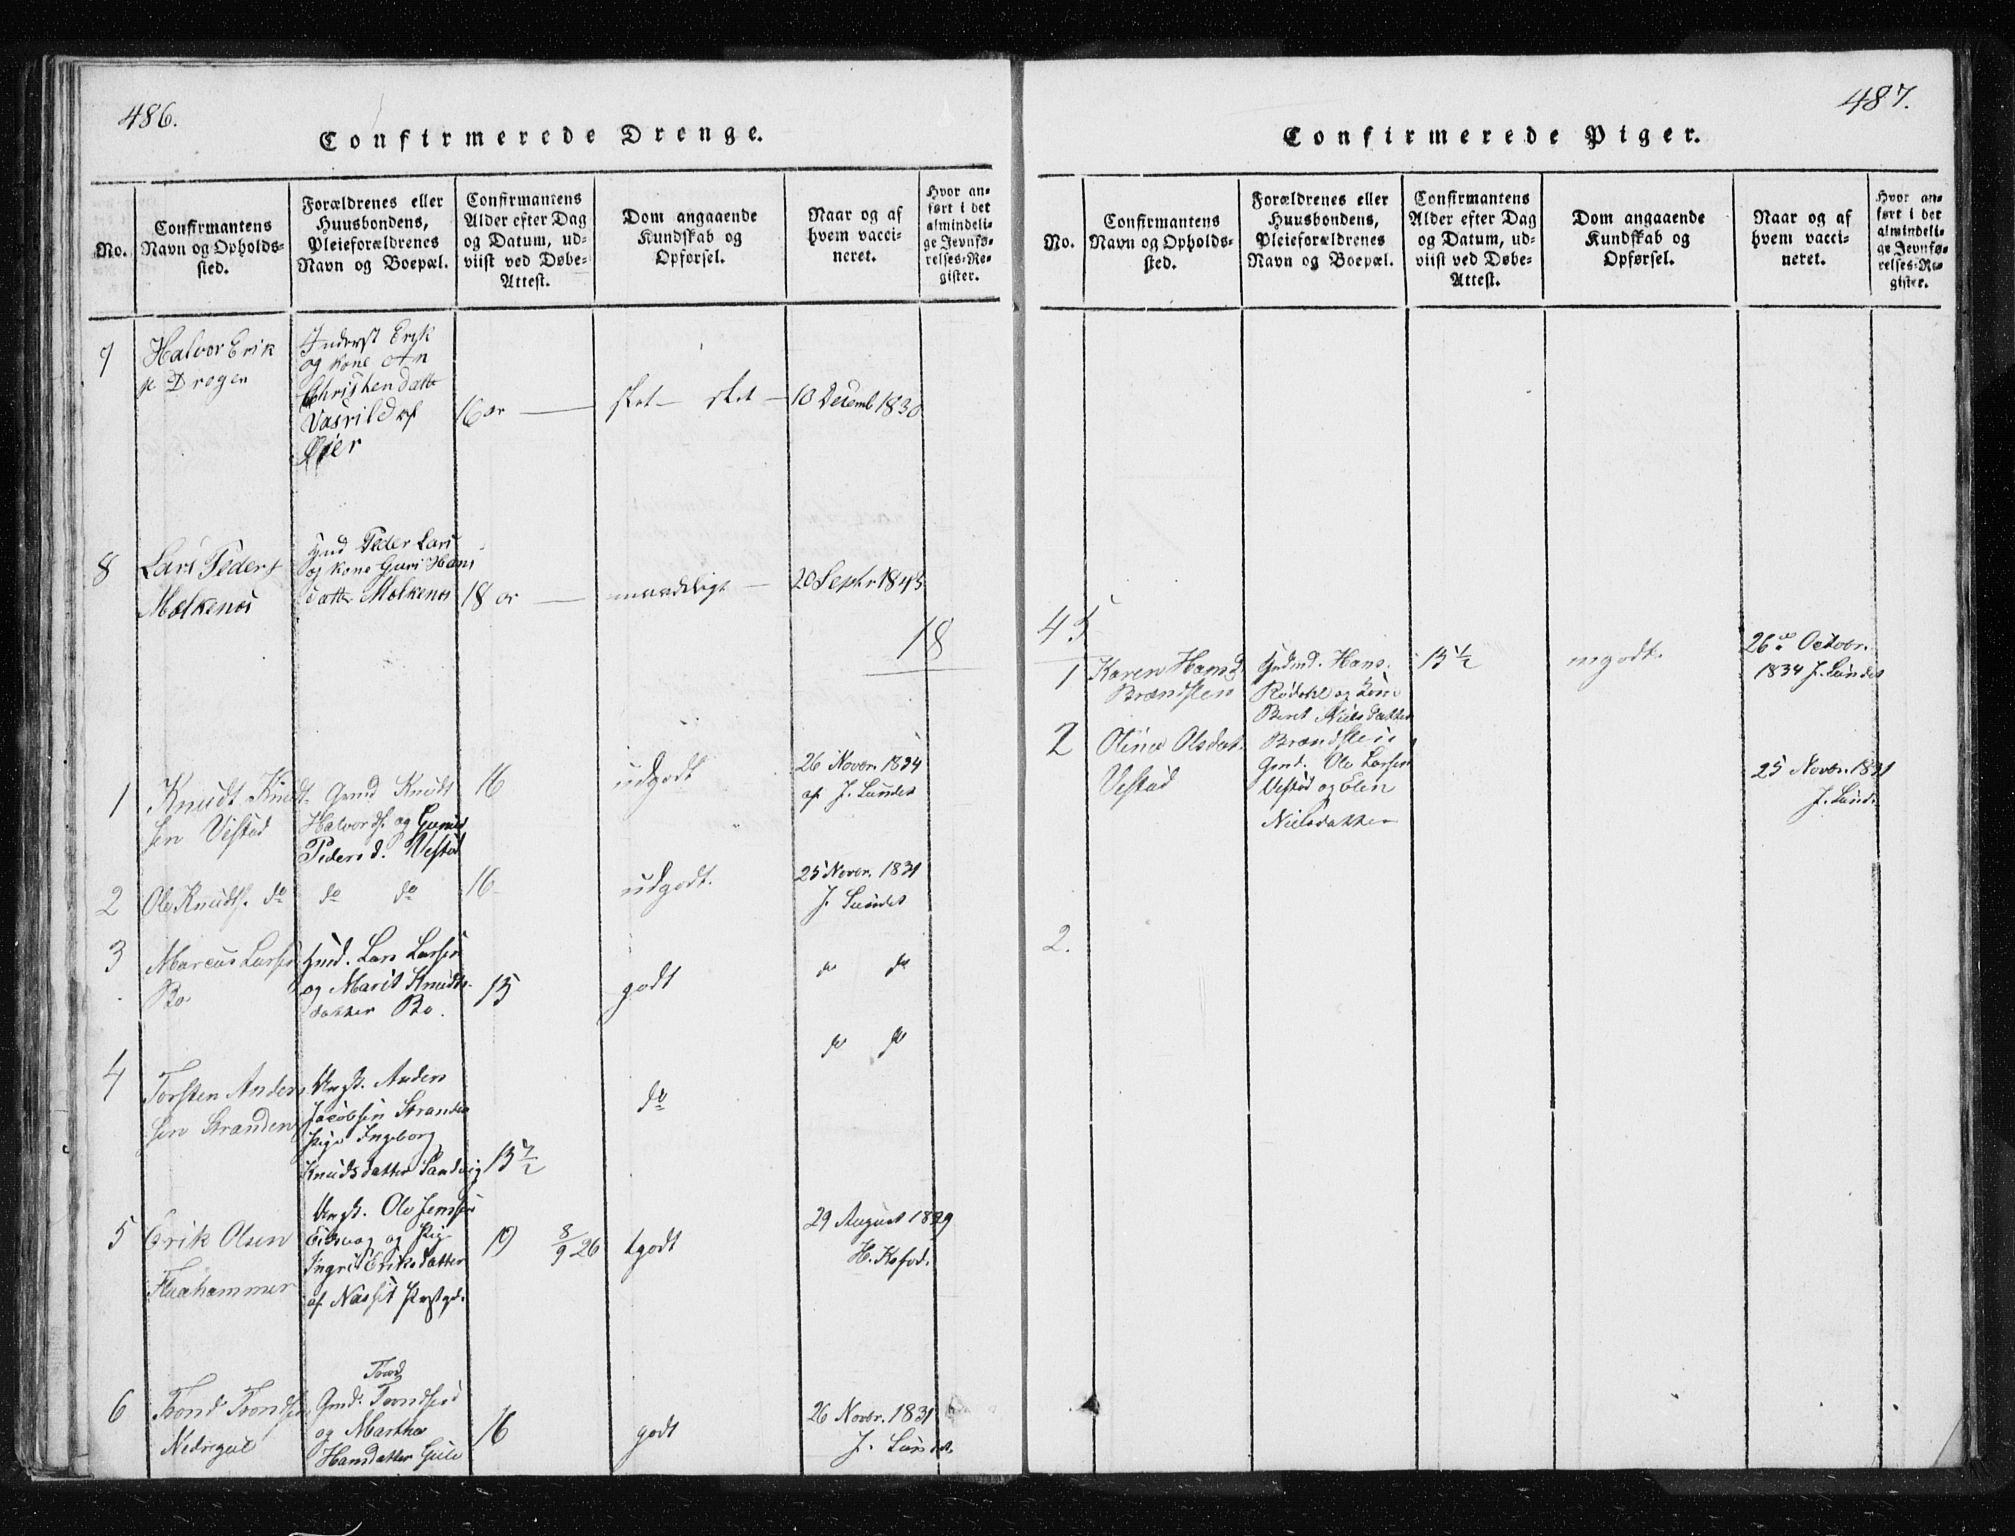 486.
Confirmerede Drenge.
No.
Confirmantens
Navn og Opholds-
sted.
Forældrenes eller
Huusbondens,
Pleieforældrenes
Navn og Boepæl.
Confirmantens
Alder efter Dag
og Datum, ud-
viist ved Døbe-
Attest.
Dom angaaende
Kundskab og
Opførsel.
Naar og af
hvem vacci-
neret.
Hvor an-
ført i det
almindeli-
ge Jevnfø-
relses-Re-
gister.
7
Halvor Erik
Drogen
Inderst Erik
og kone An
Christendatt
af
Øier
16 ar
slet — slet
10 Decemb 1830
8
Lars Peders
Molkenes
Gmd Peder Lars
og kone Guri Hans
datt Molkenes
18 ar
maadeligt
20 Septr 1843
18
1
Knudt Knudt-
sen Vestad
Gmd Knudt
Halvords. og Guru
Pedersd. Vestad
16
udgodt
26 Novbr. 1834
af J. Lundet
2
Ole Knuds. do
do do
16
udgodt.
25 Novbr. 1831
J. Lundet
3
Marcus Larsen
Bo
Gmd. Lars Larsen
og Marit Knuds-
datter Bo.
15
godt
do do
4
Torsten Anders
sen Stranden
Ungk. Anders
Jacobsen Stranden
Pige Ingeborg
Knudsdatter Sandvig
15 1/2
do
do do
5
Erik Olsen
Ungk. Ole Jensen
Eidsvag og Pige
Ingrid Eriksdatter
af Nesset Præstgd.
19
8/9 26
tgodt
29 August 1829
H. Kofod.
6
Trond Trondsen
Trond
Gmd. Trondsen
og Martha
Hansdatter
16
godt
26 Novbr. 1831
J. Lundet
487.
Confirmerede Piger.
No.
Confirmantens
Navn og Opholds-
sted.
Forældrenes eller
Huusbondens,
Pleieforældrenes
Navn og Boepæl.
Confirmantens
Alder efter Dag
og Datum, ud-
viist ved Døbe-
Attest.
Dom angaaende
Kundskab og
Opførsel.
Naar og af
hvem vacci-
neret.
Hvor an-
ført i det
almindeli-
ge Jevnfø-
relses-Re-
gister.
45
1
Karen Hansd.
Brændsten
Gmd. Hans
Rødahl og Kone
Beret Nielsdatter
Brændsten
15 1/2
mgodt.
26de Octobr.
1834 J. Lundet
2
Olina Olsdat.
Vestad
Gmd. Ole Larsen
Vestad og Elen
Nielsdatter
25 Novbr. 1831
J. Lund.
2.